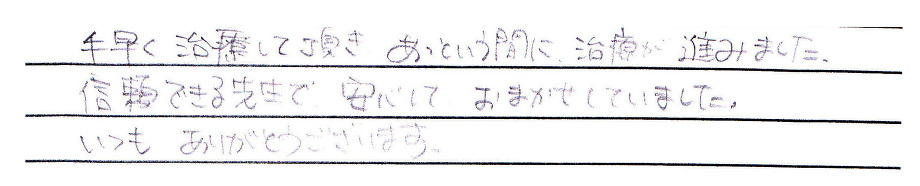 手早く治療して頂き、あっという間に治療が進みました。
信頼できる先生で安心しておまかせしていました。
いつもありがとうございます。